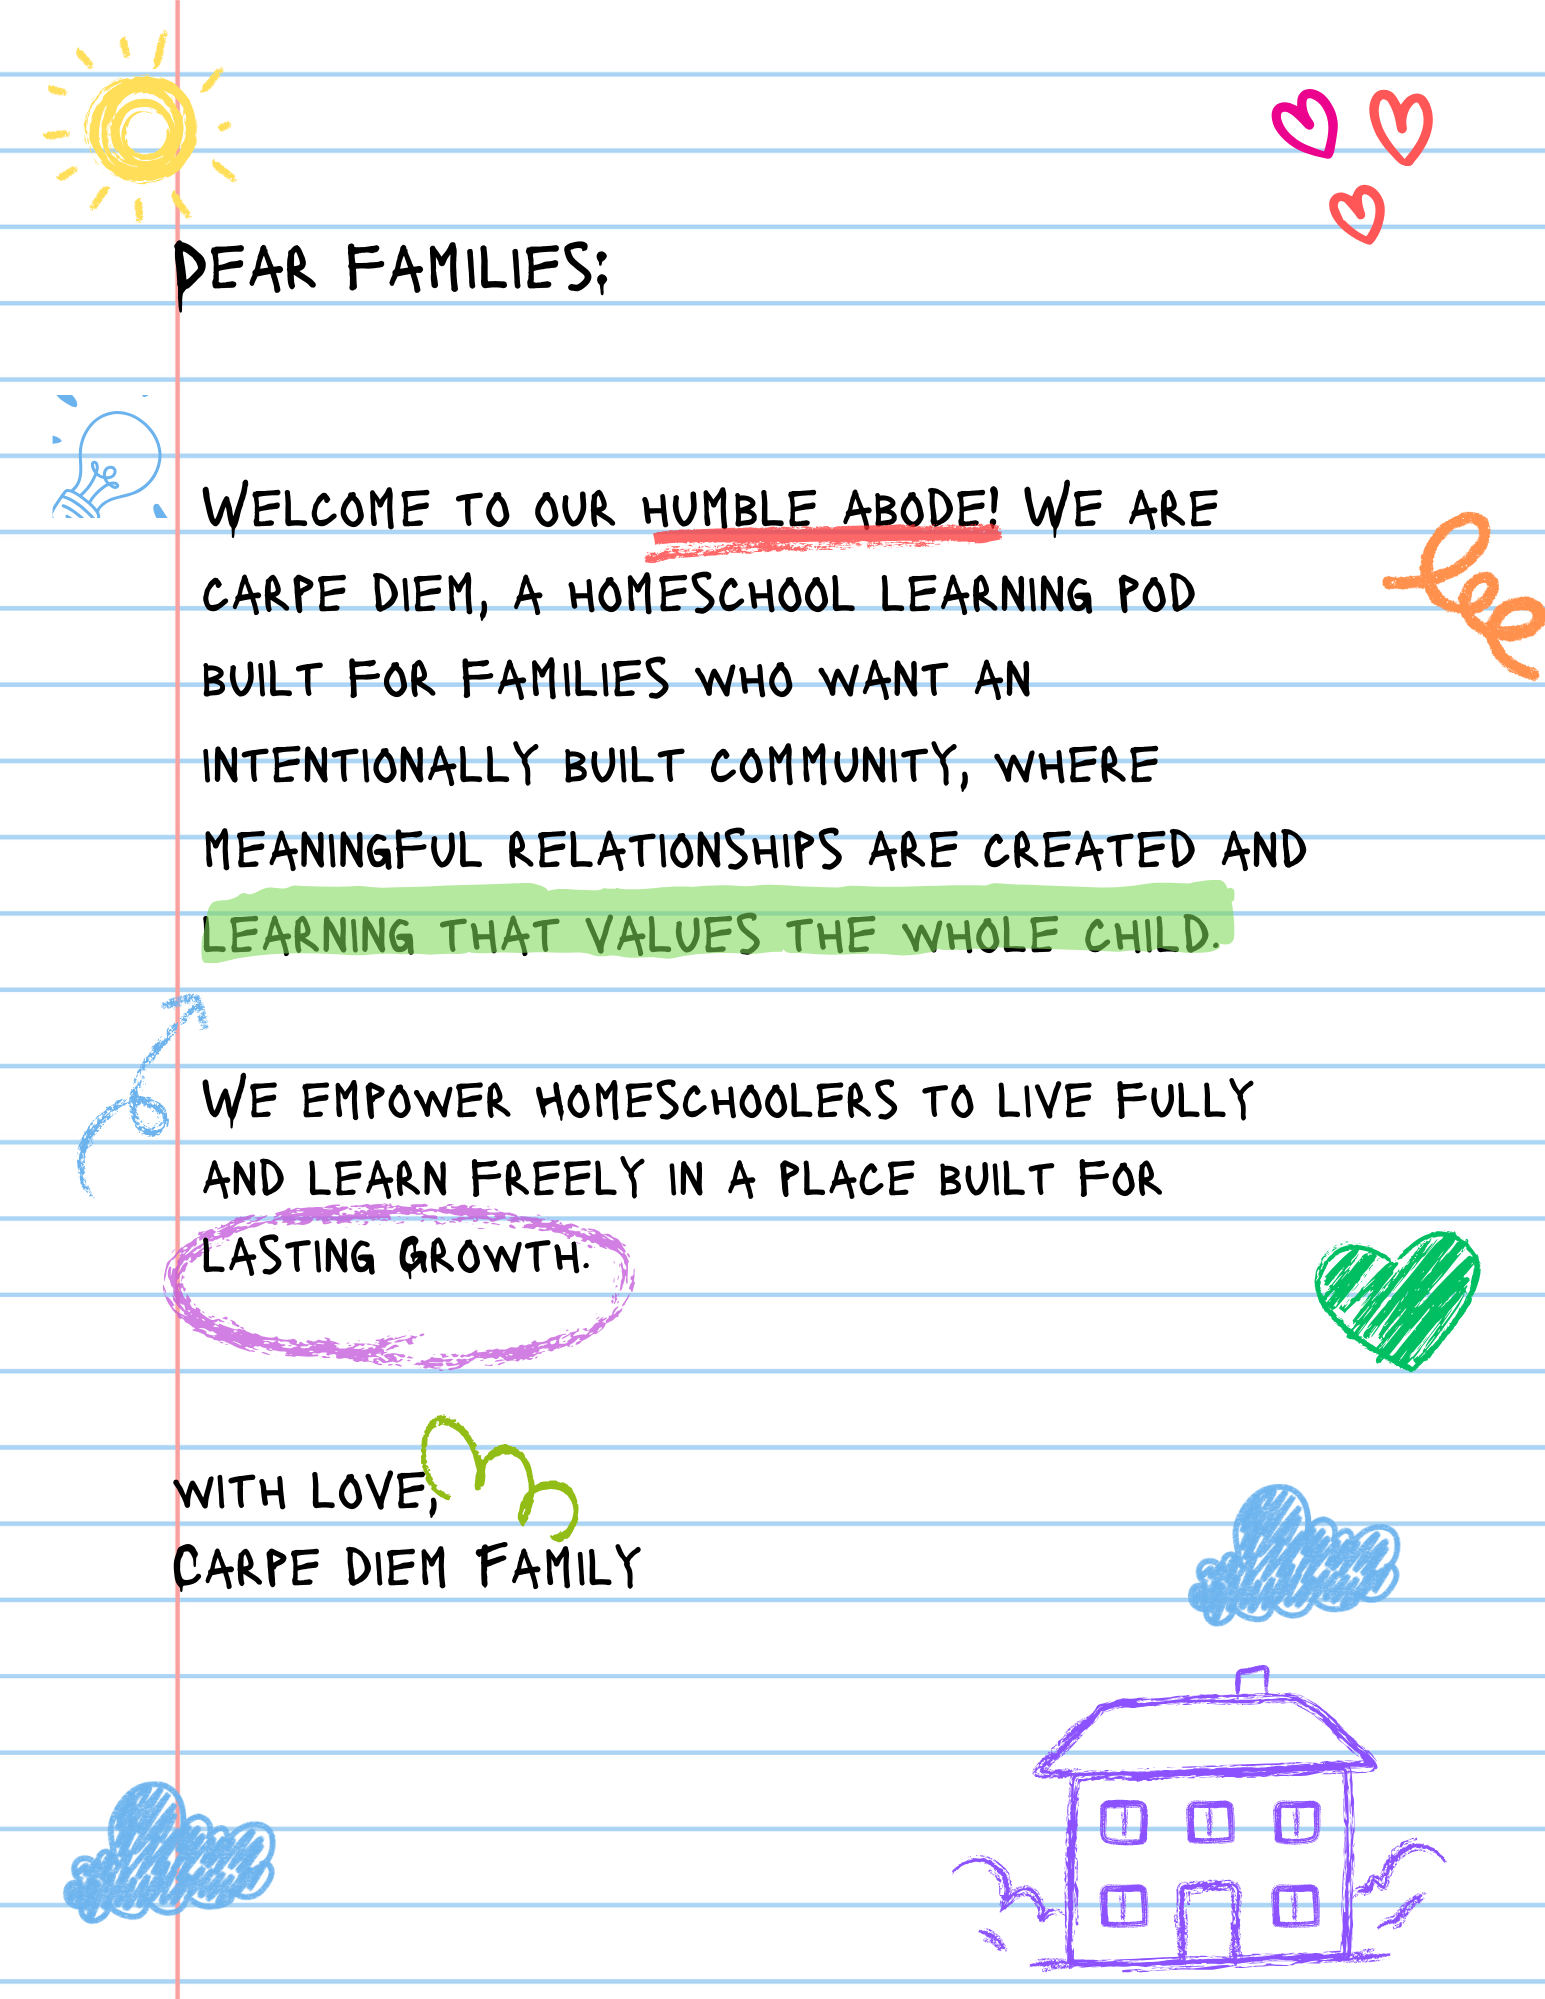 Dear Families:
Welcome to our humble abode! We are
Carpe Diem, a homeschool learning pod
built for families who want an
intentionally built community, where
meaningful relationships are created and
learning that values the whole child.
We empower homeschoolers to live fully
and learn freely in a place built for
lasting Growth.
with love,
Carpe Diem Family